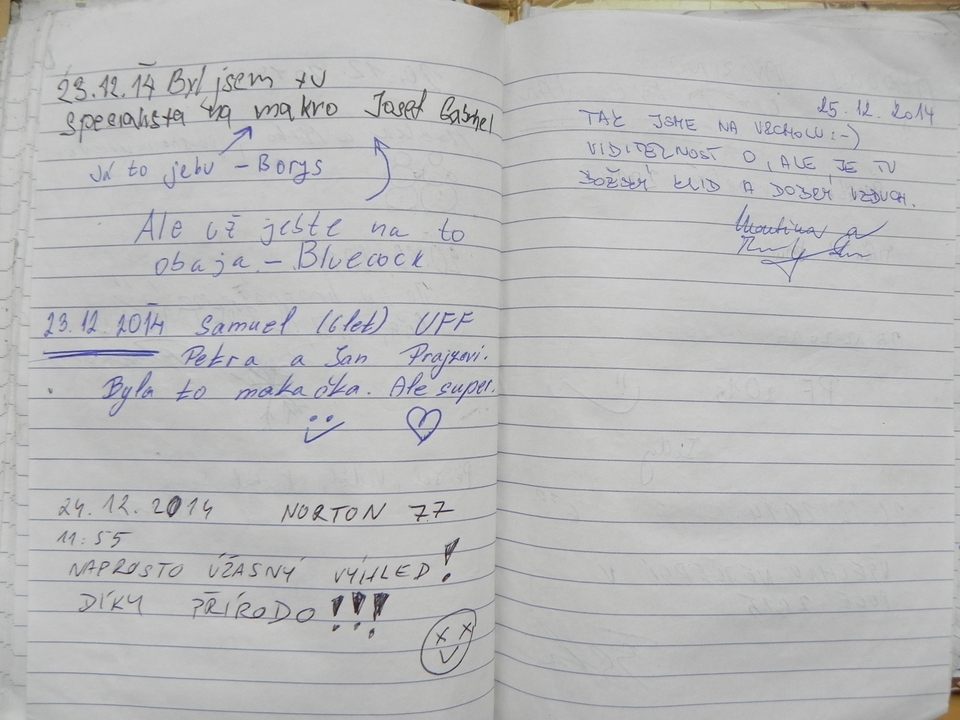 23.12.14 Byl jsem tu
specialista na makro Josef Gabriel
Já to jebu - Borys
Ale už ješte na to
obaja - Bluecock
23.12.2014 Samuel (6let) UFF
Petra a Jan Prajzovi.
Byla to makačka. Ale super.
24.12.2014 NORTON 77
11:55
NAPROSTO ÚŽASNÝ VÝHLED!
DÍKY PŘÍRODO!!!
25.12.2014
TAK JSME NA VRCHOLU :-)
VIDITELNOST 0, ALE JE TU
BOŽSKÝ KLID A DOBRÝ VZDUCH.
Martina a